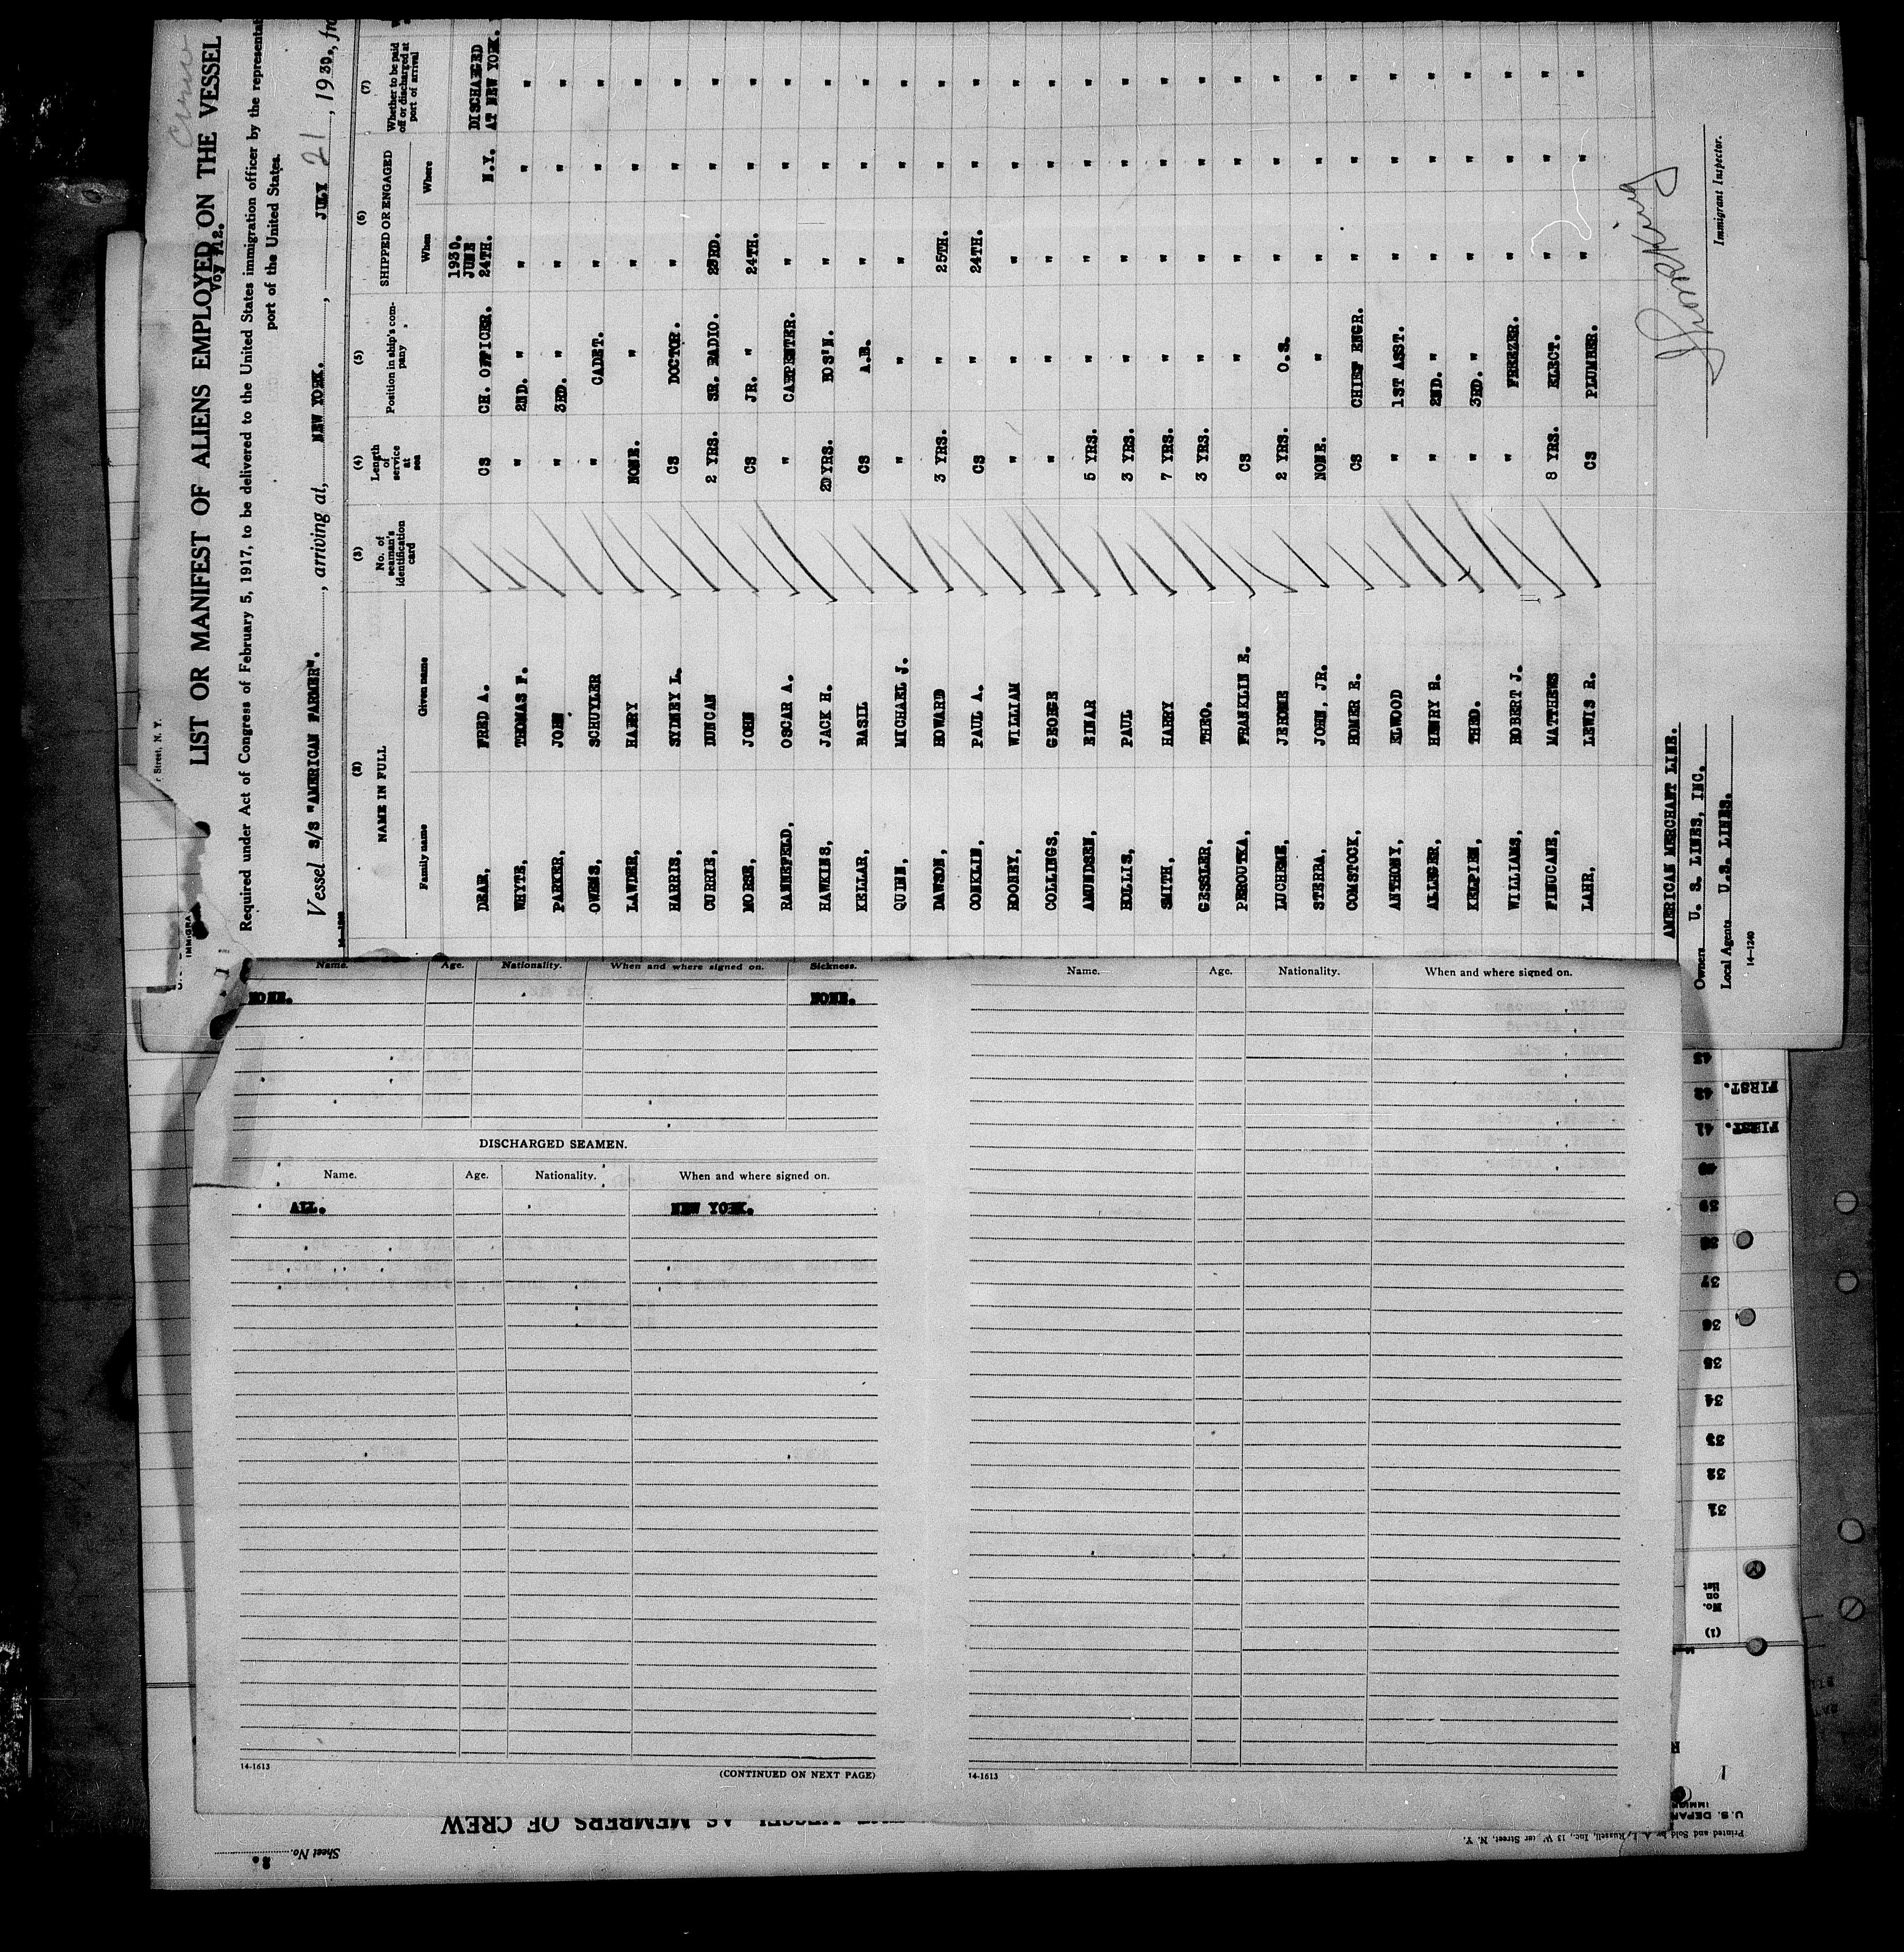 LIST OR MANIFEST OF ALIENS EMPLOYED ON THE VESSEL
Voy #12.
Required under Act of Congress of February 5, 1917, to be delivered to the United States immigration officer by the
port of the United States.
Vessel S/S "AMERICAN FARMER"., arriving at, NEW YORK., JULY 21, 1930.,
(2) (3) (4) (5) (6) (7)
NAME IN FULL No. of seaman's identification card Length of service at sea Position in ship's company SHIPPED OR ENGAGED Whether to be paid off or discharged at port of arrival
Family name Given name When Where
DEAR, FRED A. CS CH. OFFICER. 1930. JUNE 24TH. N.Y. DISCHARGED AT NEW YORK.
WHYTE, THOMAS F. " 2ND. " " " "
PARKER, JOHN " 3RD. " " " "
OWENS, SCHUYLER " CADET. " " "
LAWDER, HARRY NONE. " " " "
HARRIS, SYDNEY L. CS DOCTOR. " " "
CURRIE, DUNCAN 2 YRS. SR. RADIO. 23RD. " "
MORSE, JOHN CS JR. " 24TH. " "
RANNEFELD, OSCAR A. " CARPENTER. " " "
HAWKINS, JACK H. 20 YRS. BOS'N. " " "
KELLAR, BASIL CS A.B. " " "
QUINN, MICHAEL J. " " " " "
DAWSON, HOWARD 3 YRS. " 25TH. " "
CONKLIN, PAUL A. CS " 24TH. " "
ROONEY, WILLIAM " " " " "
COLLINGS, GEORGE " " " " "
AMUNDSEN, EINAR 5 YRS. " " " "
HOLLIS, PAUL 3 YRS. " " " "
SMITH, HARRY 7 YRS. " " " "
GESSLER, THEO. 3 YRS. " " " "
PEROUTKA, FRANKLIN E. CS " " " "
LUCHEME, JEROME 2 YRS. O.S. " " "
STERBA, JOHN, JR. NONE. " " " "
COMSTOCK, HOMER E. CS CHIEF ENGR. " " "
ANTHONY, ELWOOD " 1ST ASST. " " "
ALLEGER, HENRY B. " 2ND. " " " "
KELPIEN, THEO. " 3RD. " " " "
WILLIAMS, ROBERT J. " FREEZER. " " "
FINUCANE, MATTHEWS 8 YRS. ELECT. " " "
LAHR, LEWIS R. CS PLUMBER. " " "
AMERICAN MERCHANT LINE.
Owners U. S. LINES, INC.
Local Agents U.S. LINES.
Immigrant Inspector.
14-1240
Name. Age. Nationality. When and where signed on. Sickness.
NONE. NONE.
DISCHARGED SEAMEN.
Name. Age. Nationality. When and where signed on.
ALL. NEW YORK.
14-1613
(CONTINUED ON NEXT PAGE)
Name. Age. Nationality. When and where signed on.
14-1613
43
42 FIRST.
41 FIRST.
40
39
38
37
36
35
34
33
32
31
(1)
AS MEMBERS OF CREW
Sheet No. 2.